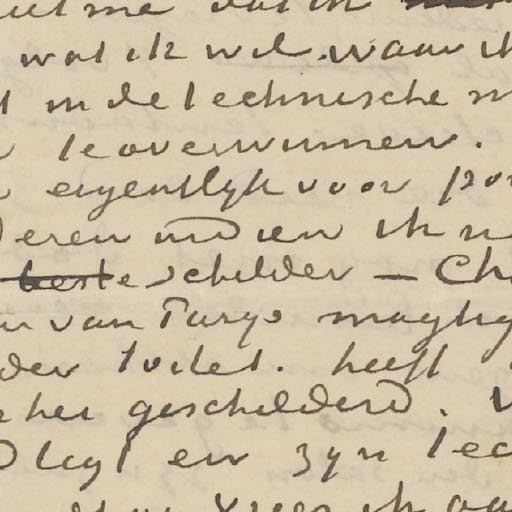 me dat ik
wat ik wil. waar ik
in de technische m
te overwinnen.
eigentlijk voor po
eren indien ik n
beste schilder – Ch
van Parys magtig
der toilet. heeft
het geschilderd. V
ligt en zyn tec
ik